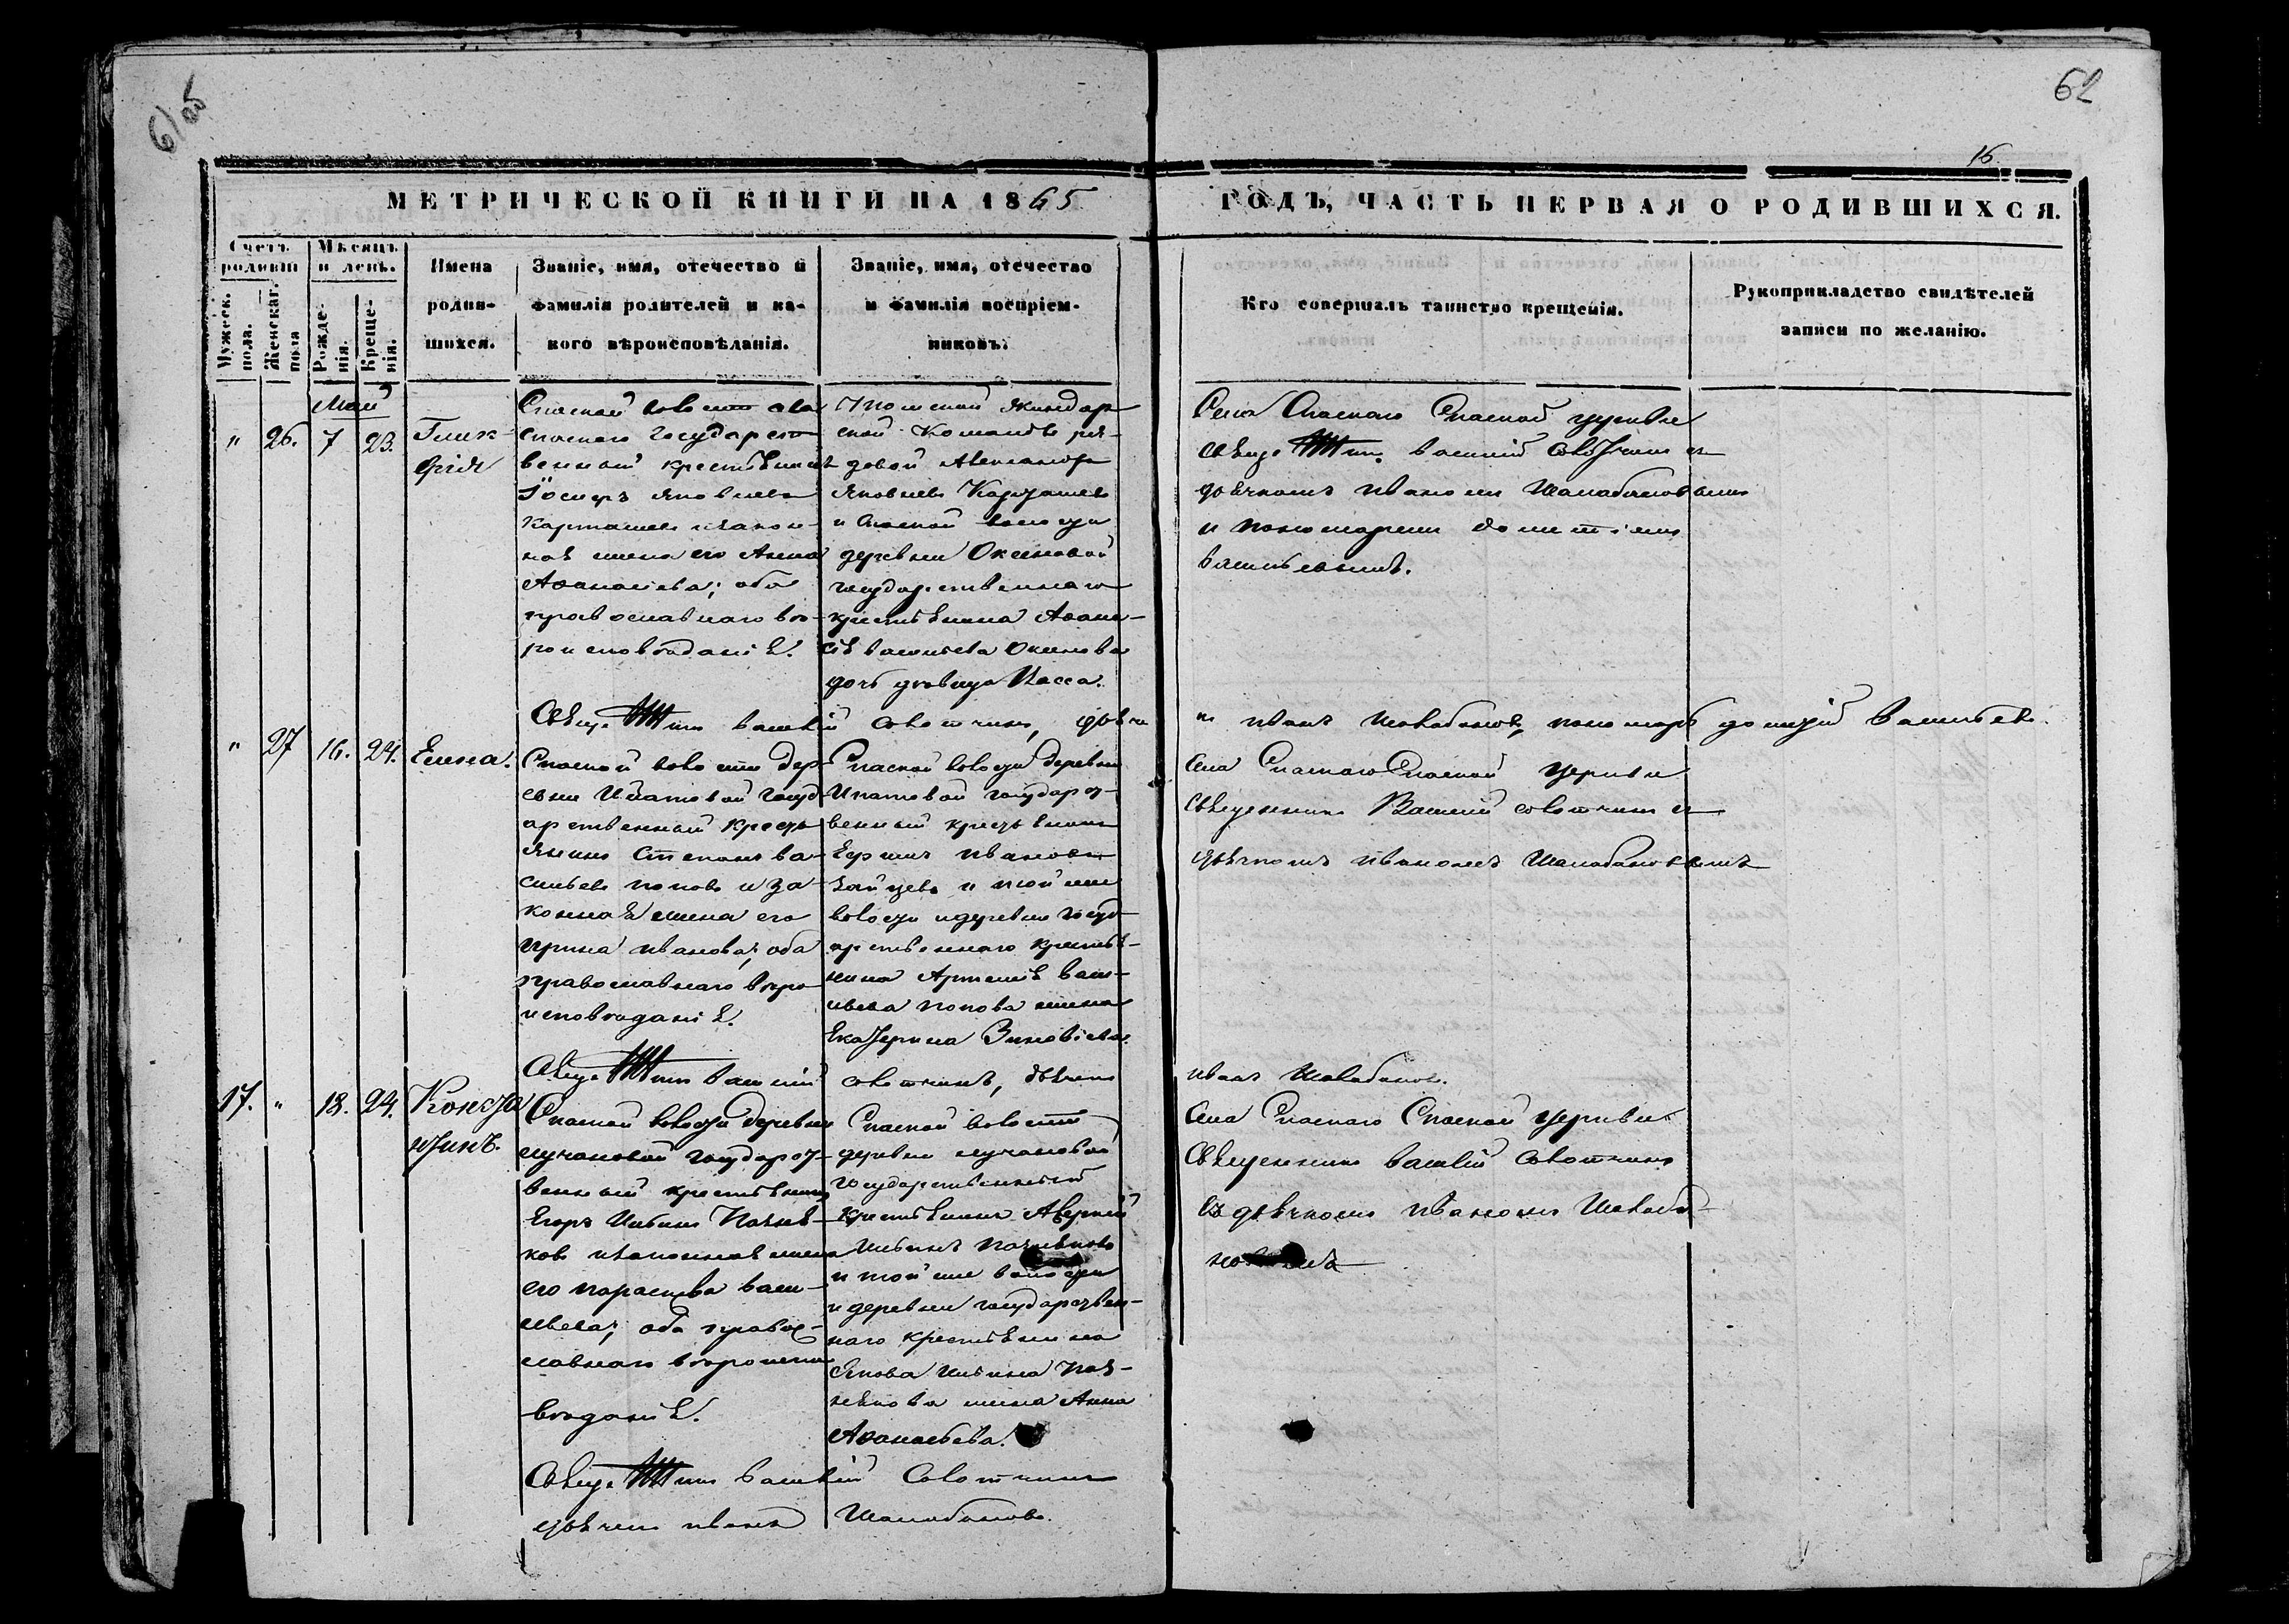 61об
62
16
МЕТРИЧЕСКОЙ КНИГИ НА 1865
ГОДЪ, ЧАСТЬ ПЕРВАЯ О РОДИВШИХСЯ.
Счетъ родивш
Мужеск. пола.
Женскаг. пола
Мѣсяцъ и день.
Рожде-нія.
Креще-нія.
Имена
родив-
шихся.
Званіе, имя, отечество и
фамилія родителей и ка-
кого вѣроисповѣданія.
Званіе, имя, отечество
и фамилія воспріем-
никовъ.
Кто совершалъ таинство крещенія.
Рукоприкладство свидѣтелей
записи по желанію.
Май
" 26. 7 23.
Глик-
ѳрія
Спаской волости села
Спаскаго Государст-
венный крестьянинъ
Іосифъ Яковлевъ
Карташевъ и закон-
ная жена его Анна
Аѳанасіева; оба
православнаго вѣ-
роисповѣданія.
Томской Жандар
ской Команды ря-
довой Александръ
Яковлевъ Карташевъ
и Спаской волости
деревни
государственнаго
крестьянина Аѳана-
сія Васильева
дочь дѣвица Васса.
Села Спаскаго Спаской церкви
Свяще нникъ Василій Совоткинъ съ
дьячкомъ Иваномъ Шалабановымъ
и пономаремъ Дометіемъ
Васильевымъ.
Свяще нникъ Василій Совоткинъ, дьячекъ Иванъ Шалабановъ, пономарь Дометій Васильевъ.
" 27 16. 24. Елена.
Спаской волости дер-
евни Ипатовой госуд-
арственный кресть
янинъ Степанъ Ва-
сильевъ Поповъ и за
конная жена его
Ирина Иванова; оба
православнаго вѣро
исповѣданія.
Спаской волости деревни
Ипатовой государст-
венный крестьянинъ
Ивановъ
Зайцевъ и той же
волости и деревни госуд-
арственнаго крестья-
нина Артемія Васи-
льева Попова жена
Екатерина Зиновіева.
Села Спаскаго Спаской церкви
Священникъ Василій Совоткинъ съ
дьячкомъ Иваномъ Шалабановымъ
Свяще нникъ Василій Совоткинъ, дьячекъ Иванъ Шалабановъ.
17. " 18. 24.
Конста
нтинъ.
Спаской волости деревни
Лучановой государст-
венный крестьянинъ
Егоръ Ильинъ
ковъ и законная жена
его Параскева Васи-
льева; оба правос-
лавнаго вѣроиспо
вѣданія.
Спаской волости
деревни Лучановой
Государственный
крестьянинъ Аверкій
Ильинъ
и той же волости
и деревни государствен-
наго крестьянина
Якова Ильина
жена Анна
Аѳанасьева.
Села Спаскаго Спаской церкви
Священникъ Василій Совоткинъ
съ дьячкомъ Иваномъ Шалаба-
новымъ
Свяще нникъ Василій Совоткинъ
дьячекъ Иванъ Шалабановъ.